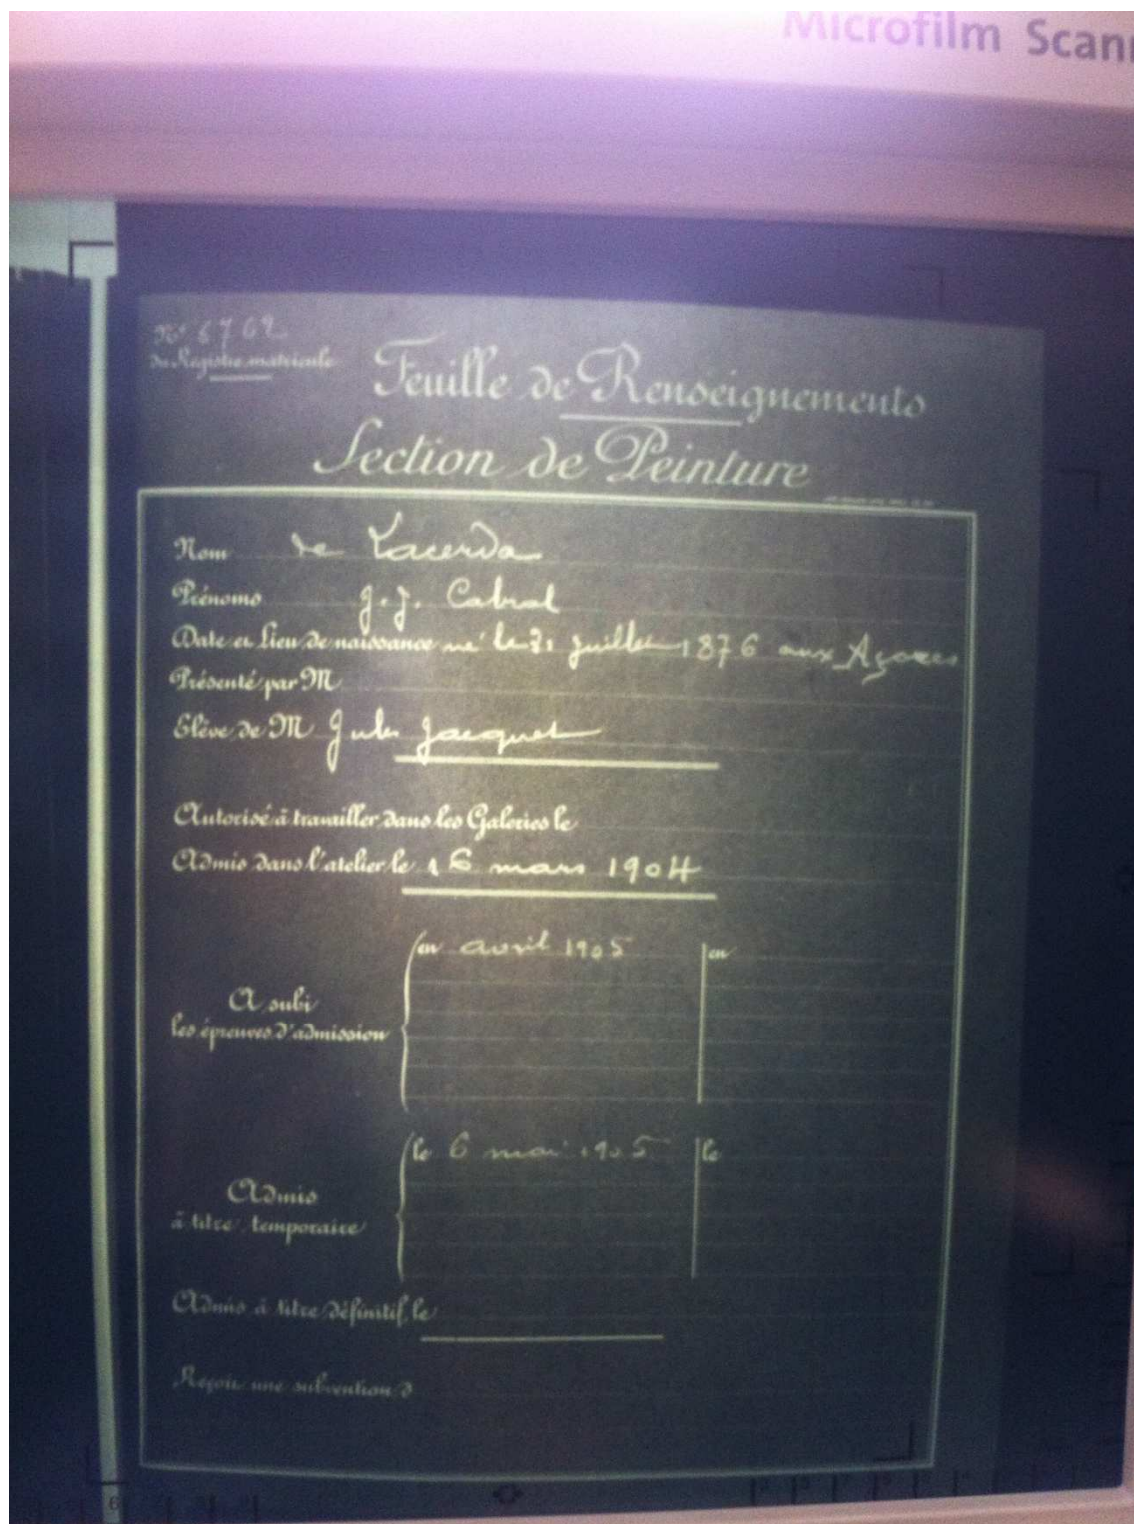 Microfilm Scann
No 6762
du Registre matricule
Feuille de Renseignements
Section de Peinture
Nom de Lacerda
Prénoms J. J. Cabral
Date et Lieu de naissance né le 31 juillet 1876 aux Açores
Présenté par M
Elève de M Jules Jacquet
Autorisé à travailler dans les Galeries le
Admis dans l'atelier le 16 mars 1904
A subi
les épreuves d'admission
en avril 1905
en
Admis
à titre temporaire
le 6 mai 1905
le
Admis à titre définitif, le
Reçoit une subvention d
6